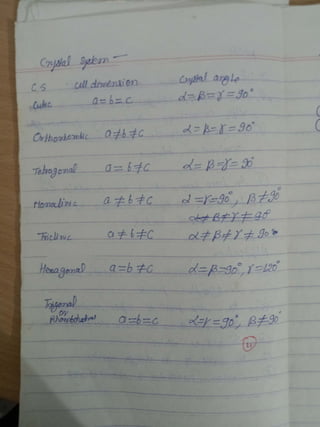 Crystal System —
C.S Cell dimension Crystal angle
Cubic a=b=c α=β=γ=90°
Orthorhombic a≠b≠c α=β=γ=90°
Tetragonal a=b≠c α=β=γ=90°
Monoclinic a≠b≠c α=γ=90°, β≠90°
α≠β≠γ≠90°
Triclinic a≠b≠c α≠β≠γ≠90°
Hexagonal a=b≠c α=β=90°, γ=120°
Trigonal
or
Rhombohedral a=b=c α=γ=90°, β≠90°